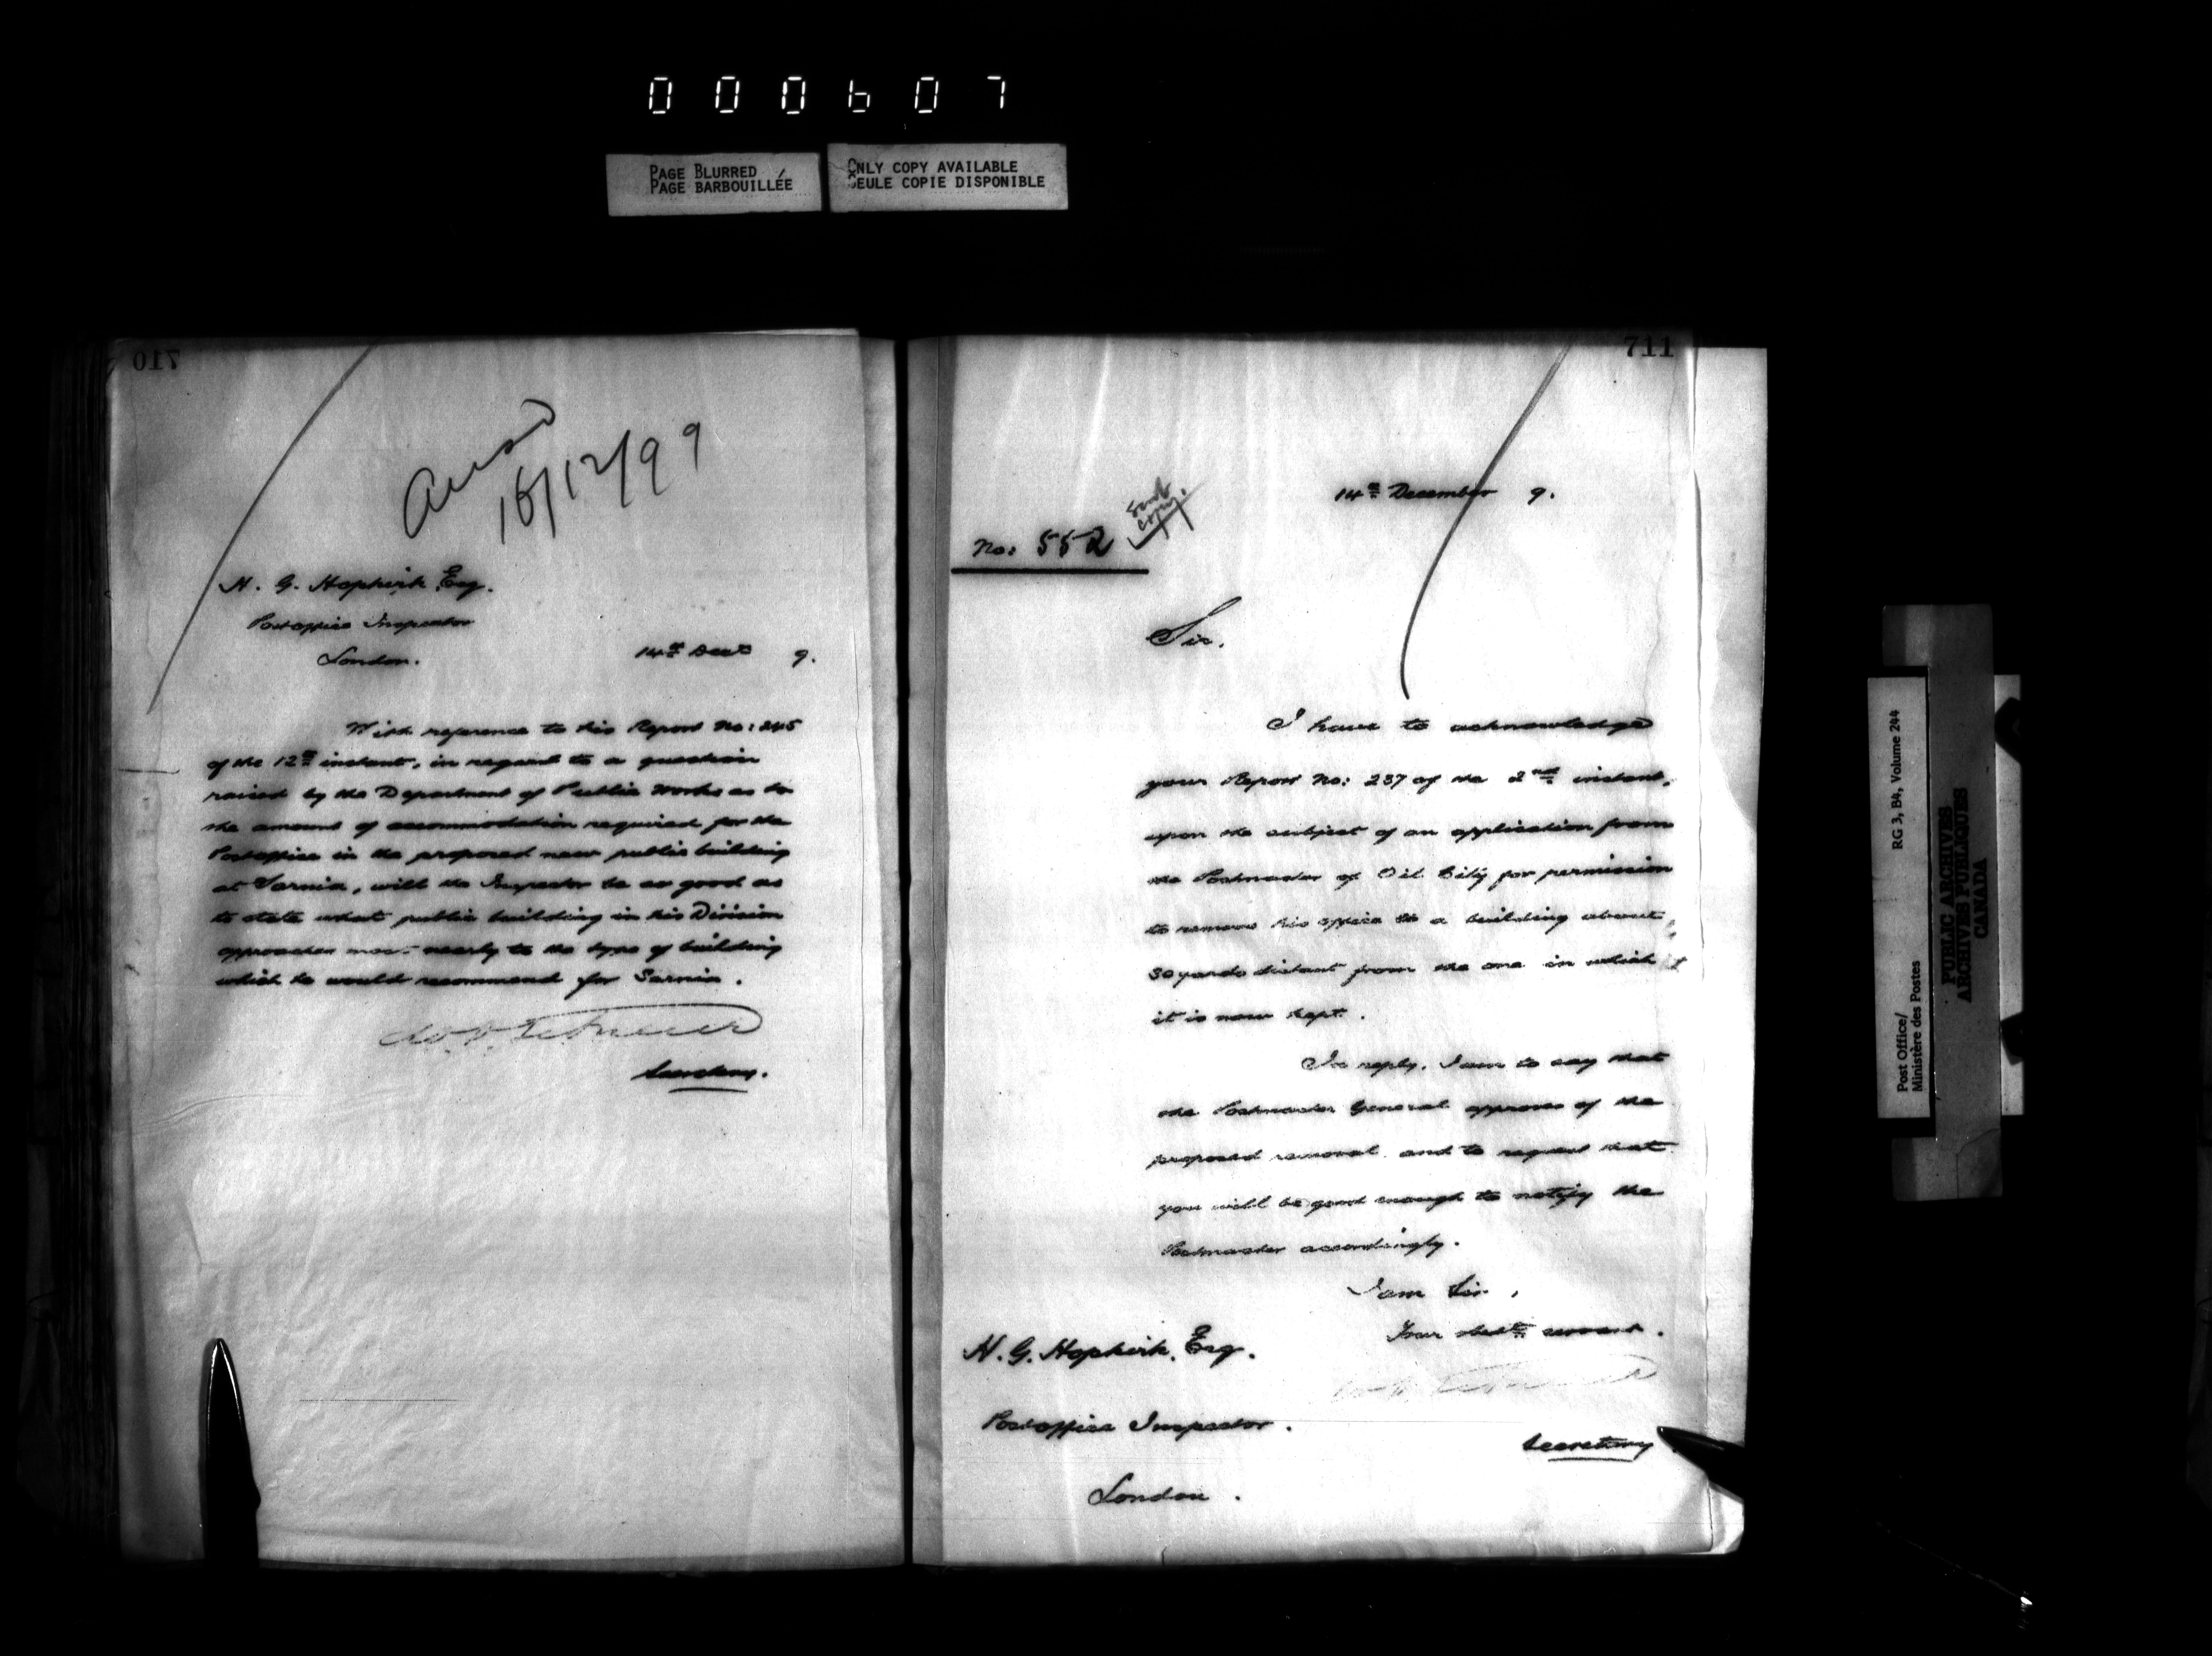 000607
PAGE BLURRED
PAGE BARBOUILLÉE
ONLY COPY AVAILABLE
SEULE COPIE DISPONIBLE
710
Ansd
16/12/99
H. G. Hopkirk Esq.
Postoffice Inspector
London.
14th Decr 9.
With reference to his Report No: 245
of the 12th instant, in regard to a question
raised by the Department of Public Works as to
the amount of accommodation required for the
Postoffice in the proposed new public building
at Sarnia, will the Inspector be so good as
to state what public building in his Division
approaches most nearly to the type of building
which he would recommend for Sarnia.
Secretary.
711
14th December 9.
Sent
copy.
No: 552
Sir.
I have to acknowledge
your Report No: 237 of the 2nd instant,
upon the subject of an application from
the Postmaster of Oil City for permission
to remove his office to a building about
30 yards distant from the one in which
it is now kept.
In reply, I am to say that
the Postmaster General approves of the
proposed removal and to request that
you will be good enough to notify the
Postmaster accordingly.
I am Sir,
Your obedt servant.
H. G. Hopkirk, Esq.
Postoffice Inspector.
Secretary
London.
Post Office/
Ministère des Postes
RG 3, B4, Volume 244
PUBLIC ARCHIVES
ARCHIVES PUBLIQUES
CANADA